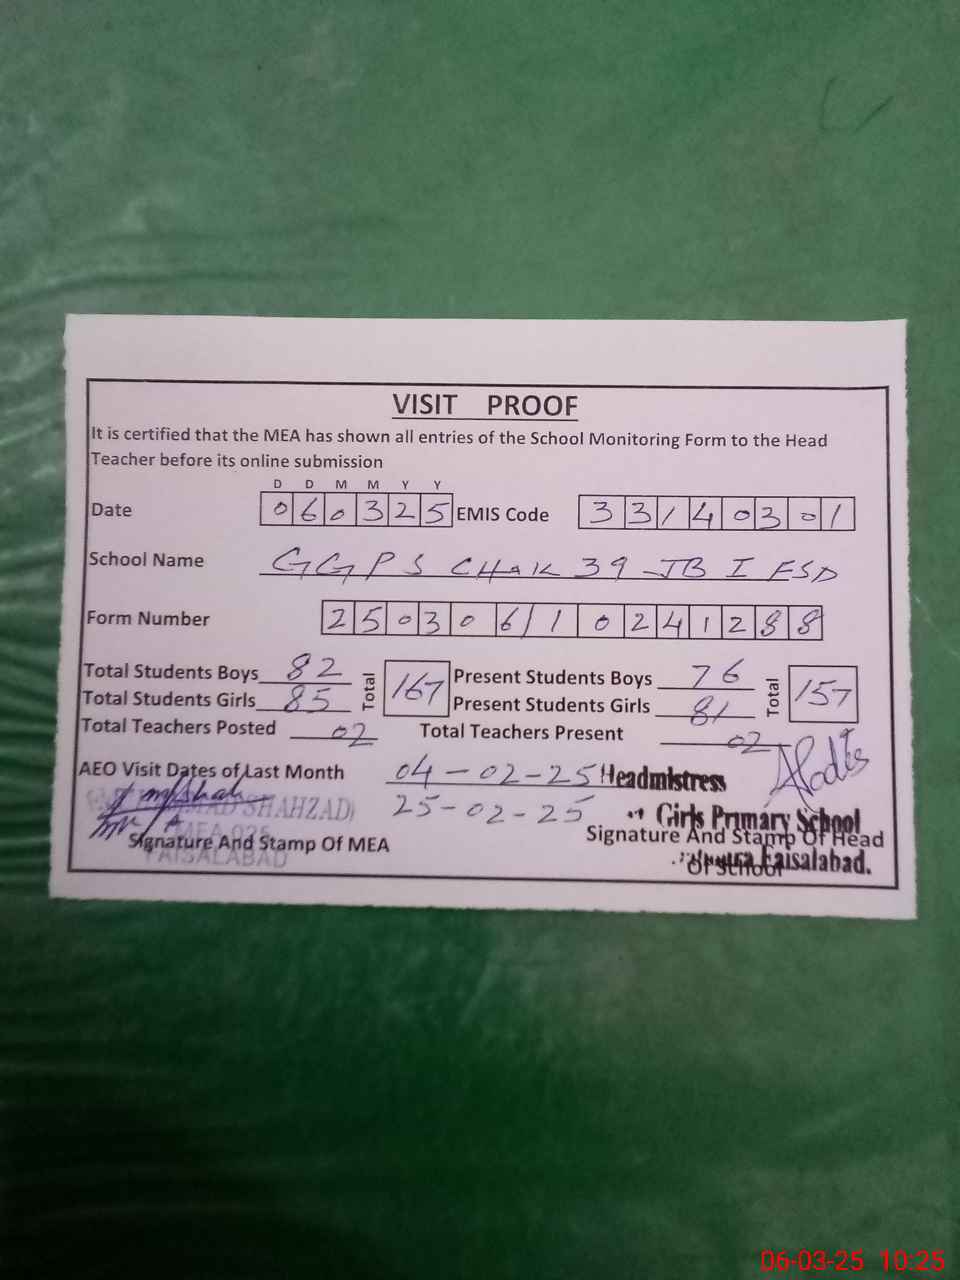 VISIT PROOF
It is certified that the MEA has shown all entries of the School Monitoring Form to the Head
Teacher before its online submission
D D M M Y Y
Date 060325 EMIS Code 33140301
School Name GGPS CHAK 39 JB I FSD
Form Number 25030611024128 8
Total Students Boys 82 Total 167 Present Students Boys 76 Total 157
Total Students Girls 85 Present Students Girls 81
Total Teachers Posted 02 Total Teachers Present 02
AEO Visit Dates of Last Month 04-02-25 Headmistress
SHAHZAD 25-02-25 Girls Primary School
Signature And Stamp Of MEA Signature And Stamp Of Head
FAISALABAD Of School Faisalabad.
06-03-25 10:25